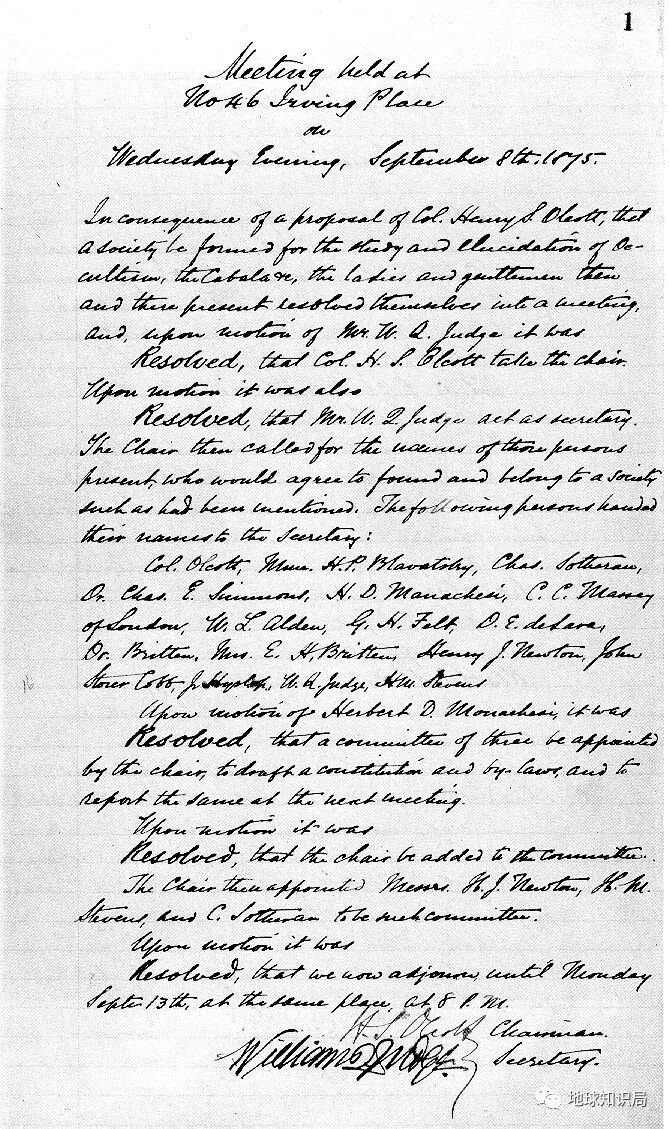 1
Meeting held at
No 46 Irving Place
on
Wednesday Evening, September 8th. 1875.
In consequence of a proposal of Col. Henry S. Olcott, that
a society be formed for the study and elucidation of Oc-
cultism, the Cabala &c, the ladies and gentlemen then
and there present resolved themselves into a meeting,
and, upon motion of Mr. W. Q. Judge it was
Resolved, that Col. H. S. Olcott take the chair.
Upon motion it was also
Resolved, that Mr. W. Q. Judge act as secretary.
The Chair then called for the names of those persons
present, who would agree to found and belong to a society
such as had been mentioned. The following persons handed
their names to the Secretary:
Col. Olcott, Mme. H. P. Blavatsky, Chas. Sotheran,
Dr. Chas. E. Simmons, H. D. Monachesi, C. C. Massey
of London, W. L. Alden, G. H. Felt, D. E. de Lara,
Dr. Britten, Mrs. E. H. Britten, Henry J. Newton, John
Storer Cobb, J. Hyslop, W. Q. Judge, H. M. Stevens
16
Upon motion of Herbert D. Monachesi, it was
Resolved, that a committee of three be appointed
by the chair, to draft a constitution and by-laws, and to
report the same at the next meeting.
Upon motion it was
Resolved, that the chair be added to the committee.
The Chair then appointed Messrs. H. J. Newton, H. M.
Stevens, and C. Sotheran to be such committee.
Upon motion it was
Resolved, that we now adjourn until Monday
Septr 13th, at the same place, at 8 P.M.
H. S. Olcott Chairman.
William Q Judge Secretary.
地球知识局